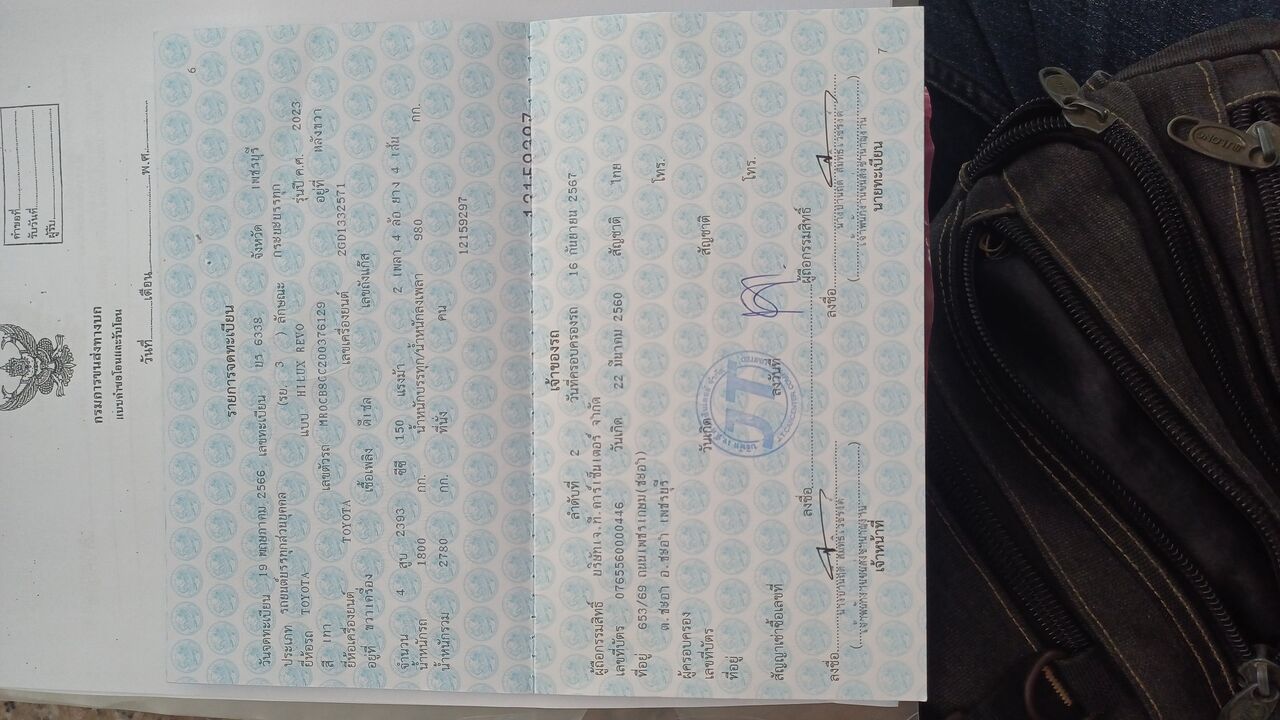 คำขอที่
รับวันที่
ผู้รับ
1
กรมการขนส่งทางบก
แบบคำขอโอนและรับโอน
วันที่ เดือน พ.ศ.
6
รายการจดทะเบียน
วันจดทะเบียน 19 พฤษภาคม 2566 เลขทะเบียน ยร 6338 จังหวัด เพชรบุรี
ประเภท รถยนต์บรรทุกส่วนบุคคล (รย. 3 ) ลักษณะ กระบะบรรทุก
ยี่ห้อรถ TOYOTA แบบ HILUX REVO รุ่นปี ค.ศ. 2023
สี เทา เลขตัวรถ MR0CB8CC200376129 อยู่ที่ หลังขวา
ยี่ห้อเครื่องยนต์ TOYOTA เลขเครื่องยนต์ 2GD1332571
อยู่ที่ ขวาเครื่อง เชื้อเพลิง ดีเซล เลขถังแก๊ส
จำนวน 4 สูบ 2393 ซีซี 150 แรงม้า 2 เพลา 4 ล้อ ยาง 4 เส้น
น้ำหนักรถ 1800 กก. น้ำหนักบรรทุก/น้ำหนักลงเพลา 980 กก.
น้ำหนักรวม 2780 กก. ที่นั่ง คน
12159297
12159297
เจ้าของรถ
ลำดับที่ 2 วันที่ครอบครองรถ 16 กันยายน 2567
ผู้ถือกรรมสิทธิ์ บริษัทเจ.ที.คาร์เซ็นเตอร์ จำกัด
เลขที่บัตร 0765560000446 วันเกิด 22 มีนาคม 2560 สัญชาติ ไทย
ที่อยู่ 653/69 ถนนเพชรเกษม(ชะอำ) โทร.
ต.ชะอำ อ.ชะอำ เพชรบุรี
ผู้ครอบครอง
เลขที่บัตร วันเกิด สัญชาติ
ที่อยู่ โทร.
JT
สัญญาเช่าซื้อเลขที่ ลงวันที่
ลงชื่อ ผู้ถือกรรมสิทธิ์
ลงชื่อ ลงชื่อ
เจ้าหน้าที่ นายทะเบียน
7